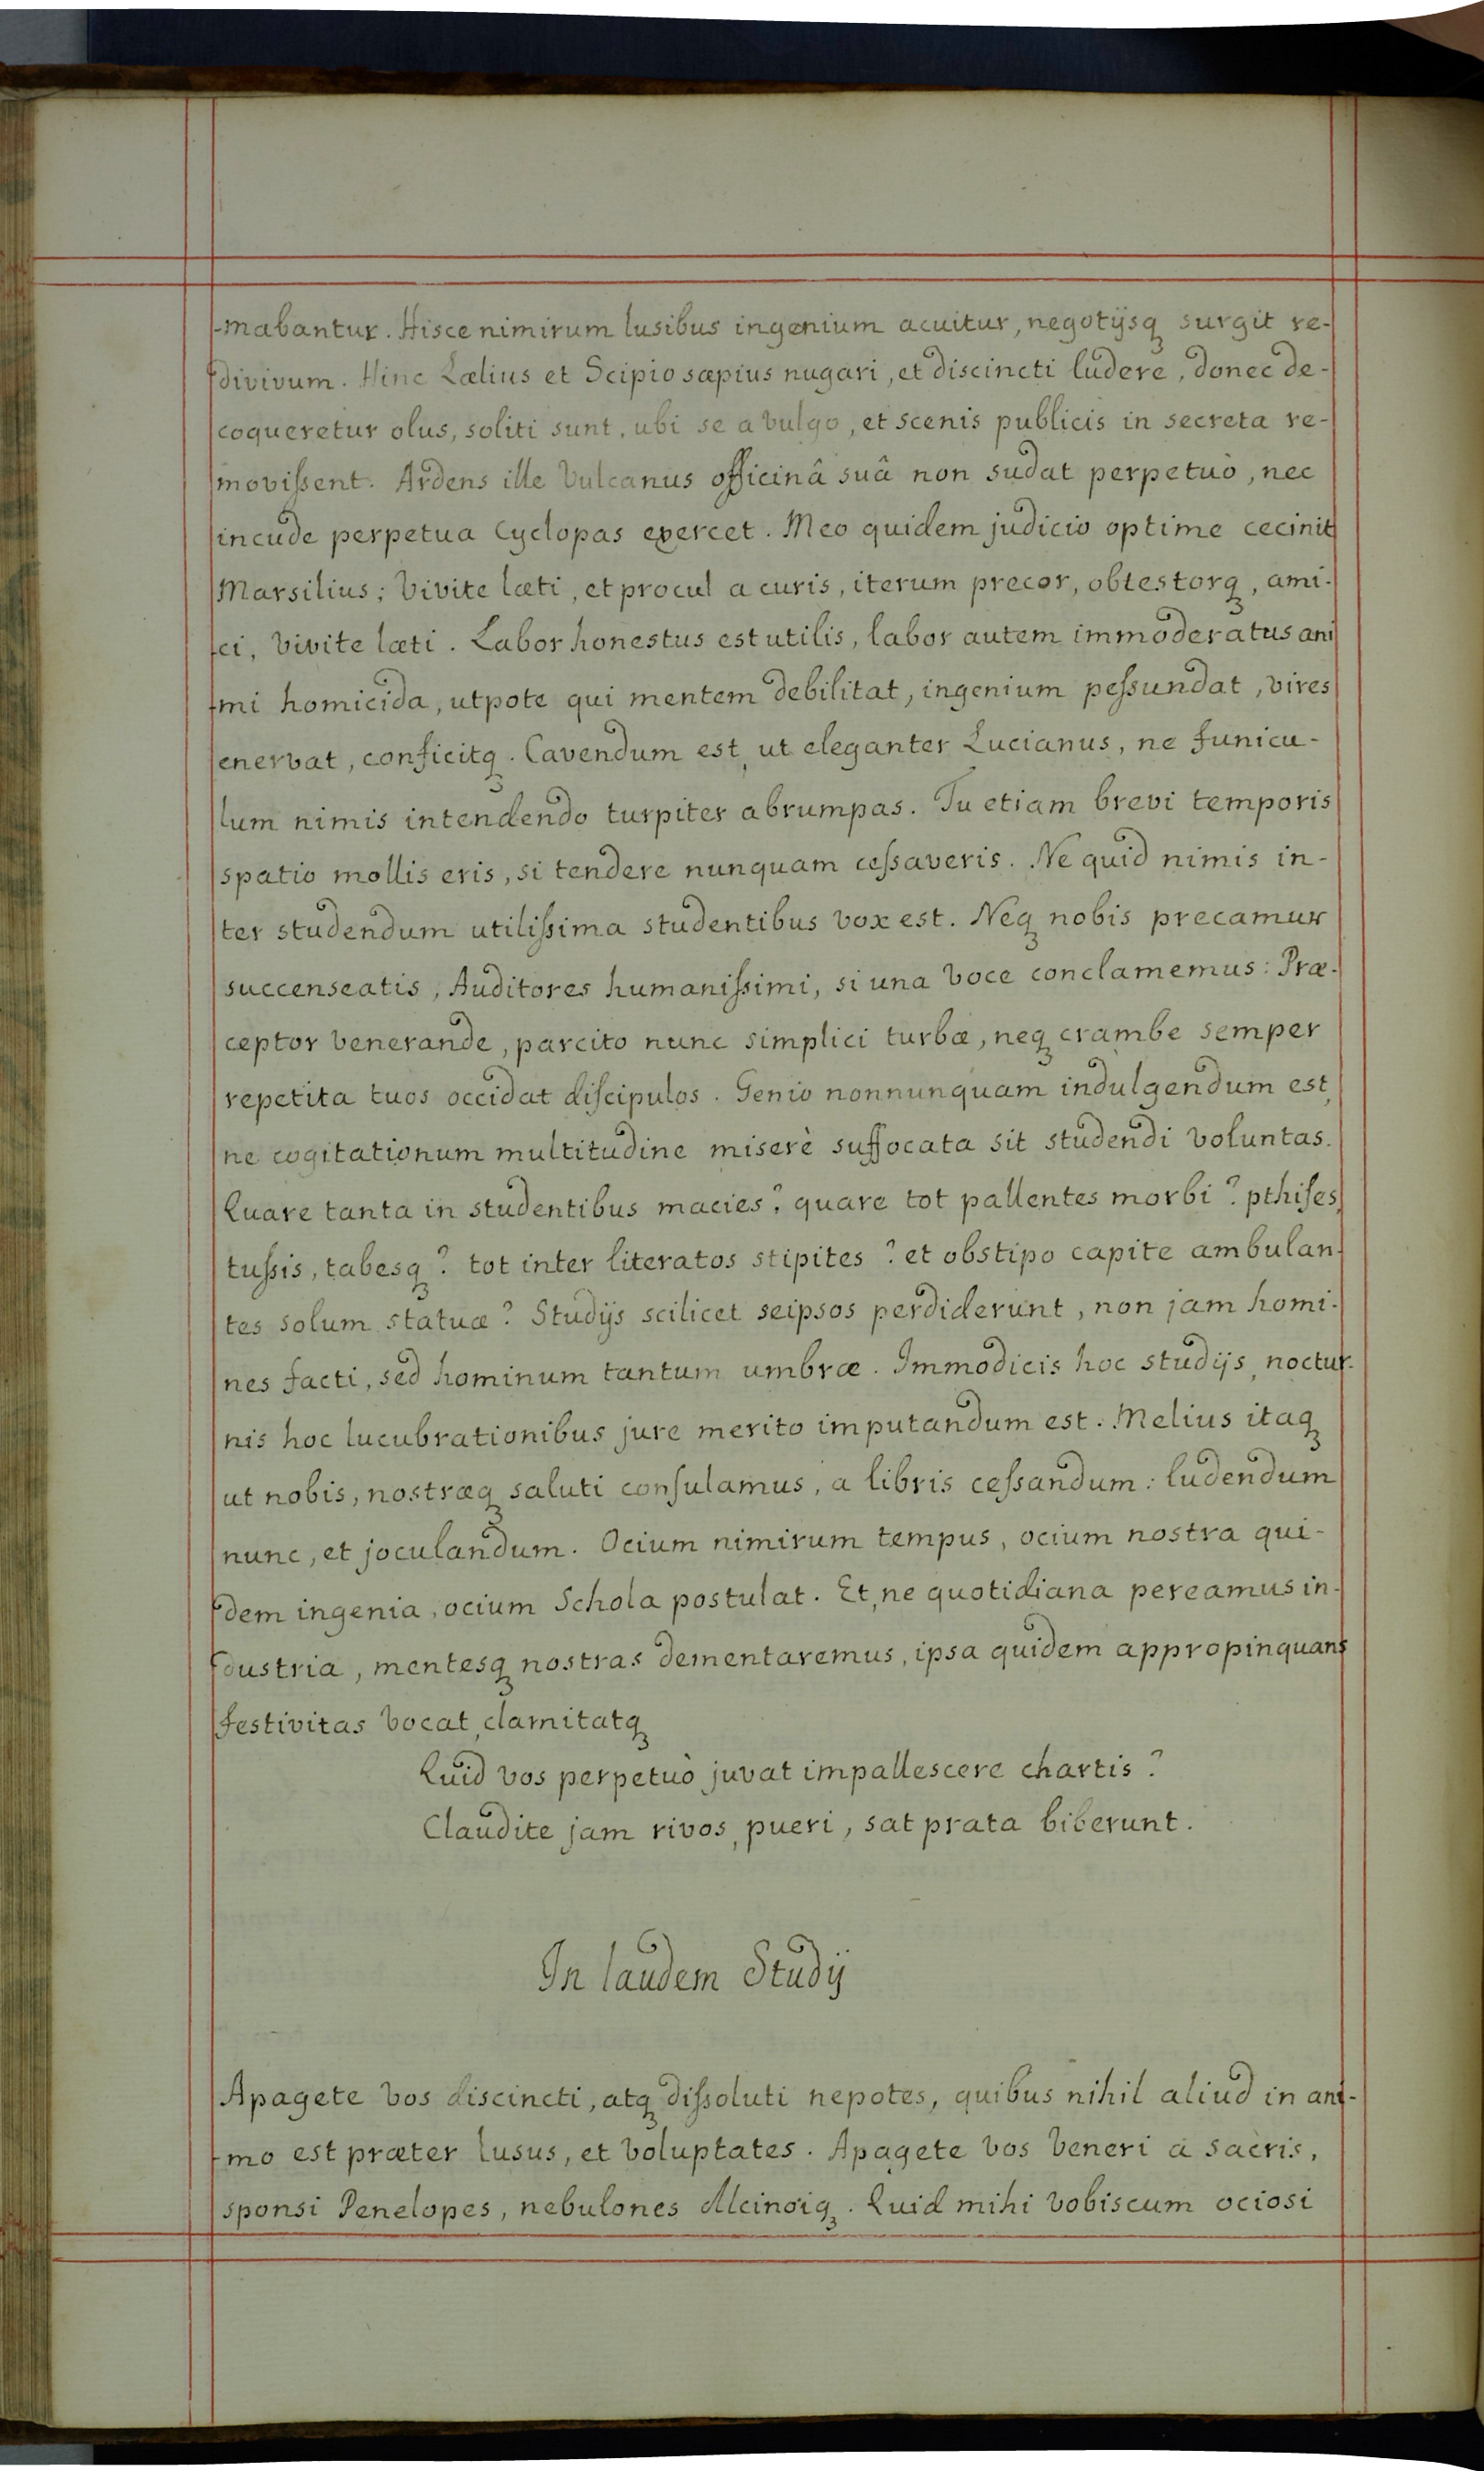 -mabantur. Hisce nimirum lusibus ingenium acuitur, negotijsqꝫ surgit re-
divivum. Hinc Lælius et Scipio sæpius nugari, et discincti ludere, donec de-
coqueretur olus, soliti sunt, ubi se a vulgo, et scenis publicis in secreta re-
moviſsent. Ardens ille Vulcanus officinâ suâ non sudat perpetuò, nec
incude perpetua Cyclopas exercet. Meo quidem judicio optime cecinit
Marsilius; Vivite læti, et procul a curis, iterum precor, obtestorqꝫ, ami-
-ci, vivite læti. Labor honestus est utilis, labor autem immoderatus ani
-mi homicida, utpote qui mentem debilitat, ingenium peſsundat, vires
enervat, conficitqꝫ. Cavendum est, ut eleganter Lucianus, ne funicu-
lum nimis intendendo turpiter abrumpas. Tu etiam brevi temporis
spatio mollis eris, si tendere nunquam ceſsaveris. Ne quid nimis in-
ter studendum utiliſsima studentibus vox est. Neqꝫ nobis precamur
succenseatis, Auditores humaniſsimi, si una voce conclamemus: Præ-
ceptor venerande, parcito nunc simplici turbæ, neqꝫ crambe semper
repetita tuos occidat diſcipulos. Genio nonnunquam indulgendum est,
ne cogitationum multitudine miserè suffocata sit studendi voluntas.
Quare tanta in studentibus macies? quare tot pallentes morbi? pthiſes,
tuſsis, tabesqꝫ? tot inter literatos stipites? et obstipo capite ambulan-
tes solum statuæ? Studijs scilicet seipsos perdiderunt, non jam homi-
nes facti, sed hominum tantum umbræ. Immodicis hoc studijs, noctur-
nis hoc lucubrationibus jure merito imputandum est. Melius itaqꝫ
ut nobis, nostræqꝫ saluti conſulamus, a libris ceſsandum: ludendum
nunc, et joculandum. Ocium nimirum tempus, ocium nostra qui-
dem ingenia, ocium Schola postulat. Et, ne quotidiana pereamus in-
dustria, mentesqꝫ nostras dementaremus, ipsa quidem appropinquans
festivitas vocat, clamitatqꝫ
Quid vos perpetuò juvat impallescere chartis?
Claudite jam rivos, pueri, sat prata biberunt.
In laudem Studij
Apagete vos discincti, atqꝫ diſsoluti nepotes, quibus nihil aliud in ani-
-mo est præter lusus, et voluptates. Apagete vos Veneri a sacris,
sponsi Penelopes, nebulones Alcinoiqꝫ. Quid mihi vobiscum ociosi